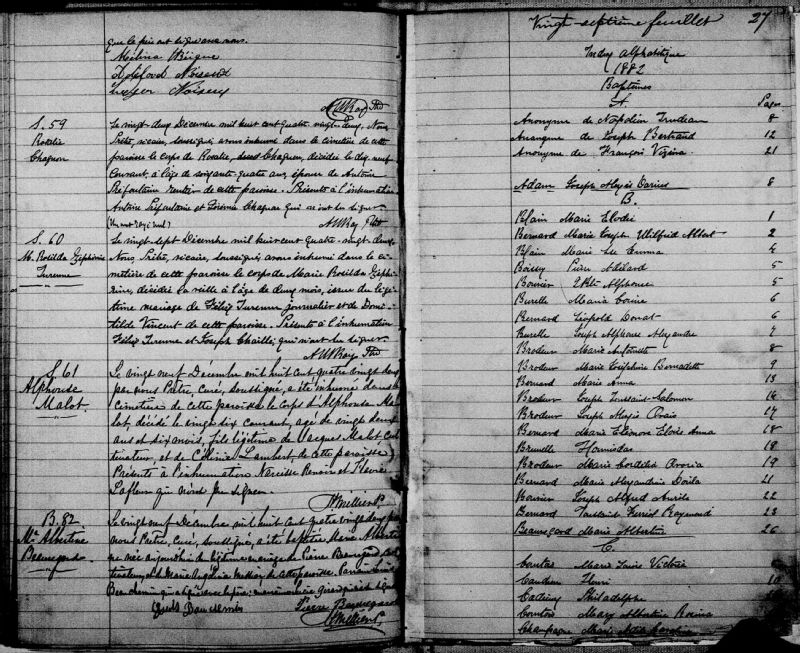 que le père ont signé avec nous.
Mélina Beïque
Noiseux
Noiseux
Ptre
S. 59
Rosalie
Chagnon
Le vingt deux Décembre mil huit cent quatre-vingt-deux, Nous
Prêtre, vicaire, soussigné, avons inhumé dans le cimetière de cette
paroisse le corps de Rosalie Chagnon, décédée le dix neuf
Courant, à l'âge de soixante-quatre ans, épouse de Antoine
Préfontaine rentier de cette paroisse. Présents à l'inhumation
Antoine Préfontaine et Chagnon qui n'ont su signer.
(Un mot rayé nul)
Ptre
S. 60
M. Rosilda Zéphirine
Turenne
Le vingt sept Décembre mil huit cent quatre-vingt-deux
Nous, Prêtre, vicaire, soussigné, avons inhumé dans le ci-
metière de cette paroisse le corps de Marie Rosilda Zéphi-
rine, décédée la veille à l'âge de deux mois, issue du légi-
time mariage de Félix Turenne journalier et de Domi-
tilde Vincent de cette paroisse. Présents à l'inhumation
Félix Turenne et Joseph Chaillé qui n'ont su signer.
Ptre
S. 61
Alphonse
Malot.
Le vingt neuf Décembre mil huit cent quatre vingt deux
par nous Prêtre, Curé, soussigné, a été inhumé dans le
cimetière de cette paroisse le corps d'Alphonse Ma-
lot, décédé le vingt six courant, agé de vingt deux
ans et dix mois, fils légitime de Jacques Malot cul-
tivateur, et de Lambert de cette paroisse
Présents à l'inhumation Narcisse Benoit et
Lafleur qui n'ont pu signer.
B. 82
Me Albertine
Beauregard
Le vingt neuf Décembre mil huit cent quatre vingt deux par
nous Prêtre, Curé, soussigné, a été baptisée Marie Alberti-
ne née aujourd'hui du légitime mariage de Pierre Beauregard cul-
tivateur, et de Marie de cette paroisse. Parrain
Pierre Beauregard
Vingt-septième feuillet 27
Index alphabétique
1882
Baptêmes
A. Pages
Anonyme de Napoléon Trudeau 8
Anonyme de Joseph Bertrand 12
Anonyme de François Vézina 21
Adam Joseph Alexis Darius 8
B.
Blain Marie Elodie 1
Bernard Marie Joseph Wilfrid Albert 2
Blain Marie Lse Emma 4
Boissy Pierre Adélard 5
Bouvier Alphonse 5
Burelle Maria Corine 6
Bernard Léopold Donat 6
Burelle Joseph Alphonse Alexandre 7
Brodeur Marie Antoinette 8
Brodeur Marie Joséphine Bernadette 9
Bernard Marie Anna 13
Brodeur Joseph Toussaint Salomon 16
Brodeur Joseph Alexis 17
Bernard Marie Eléonore Eloïse Anna 18
Brunelle Hormisdas 18
Brodeur Marie Cordélia 19
Bernard Marie Alexandrina Doila 21
Bouvier Joseph Alfred Aurèle 22
Bernard Raymond 23
Beauregard Marie Albertine 26
C.
Comtois Marie Louise Victoria
Henri 10
Philadelphe
Comtois Mary Albertine Rosina
Champagne Marie